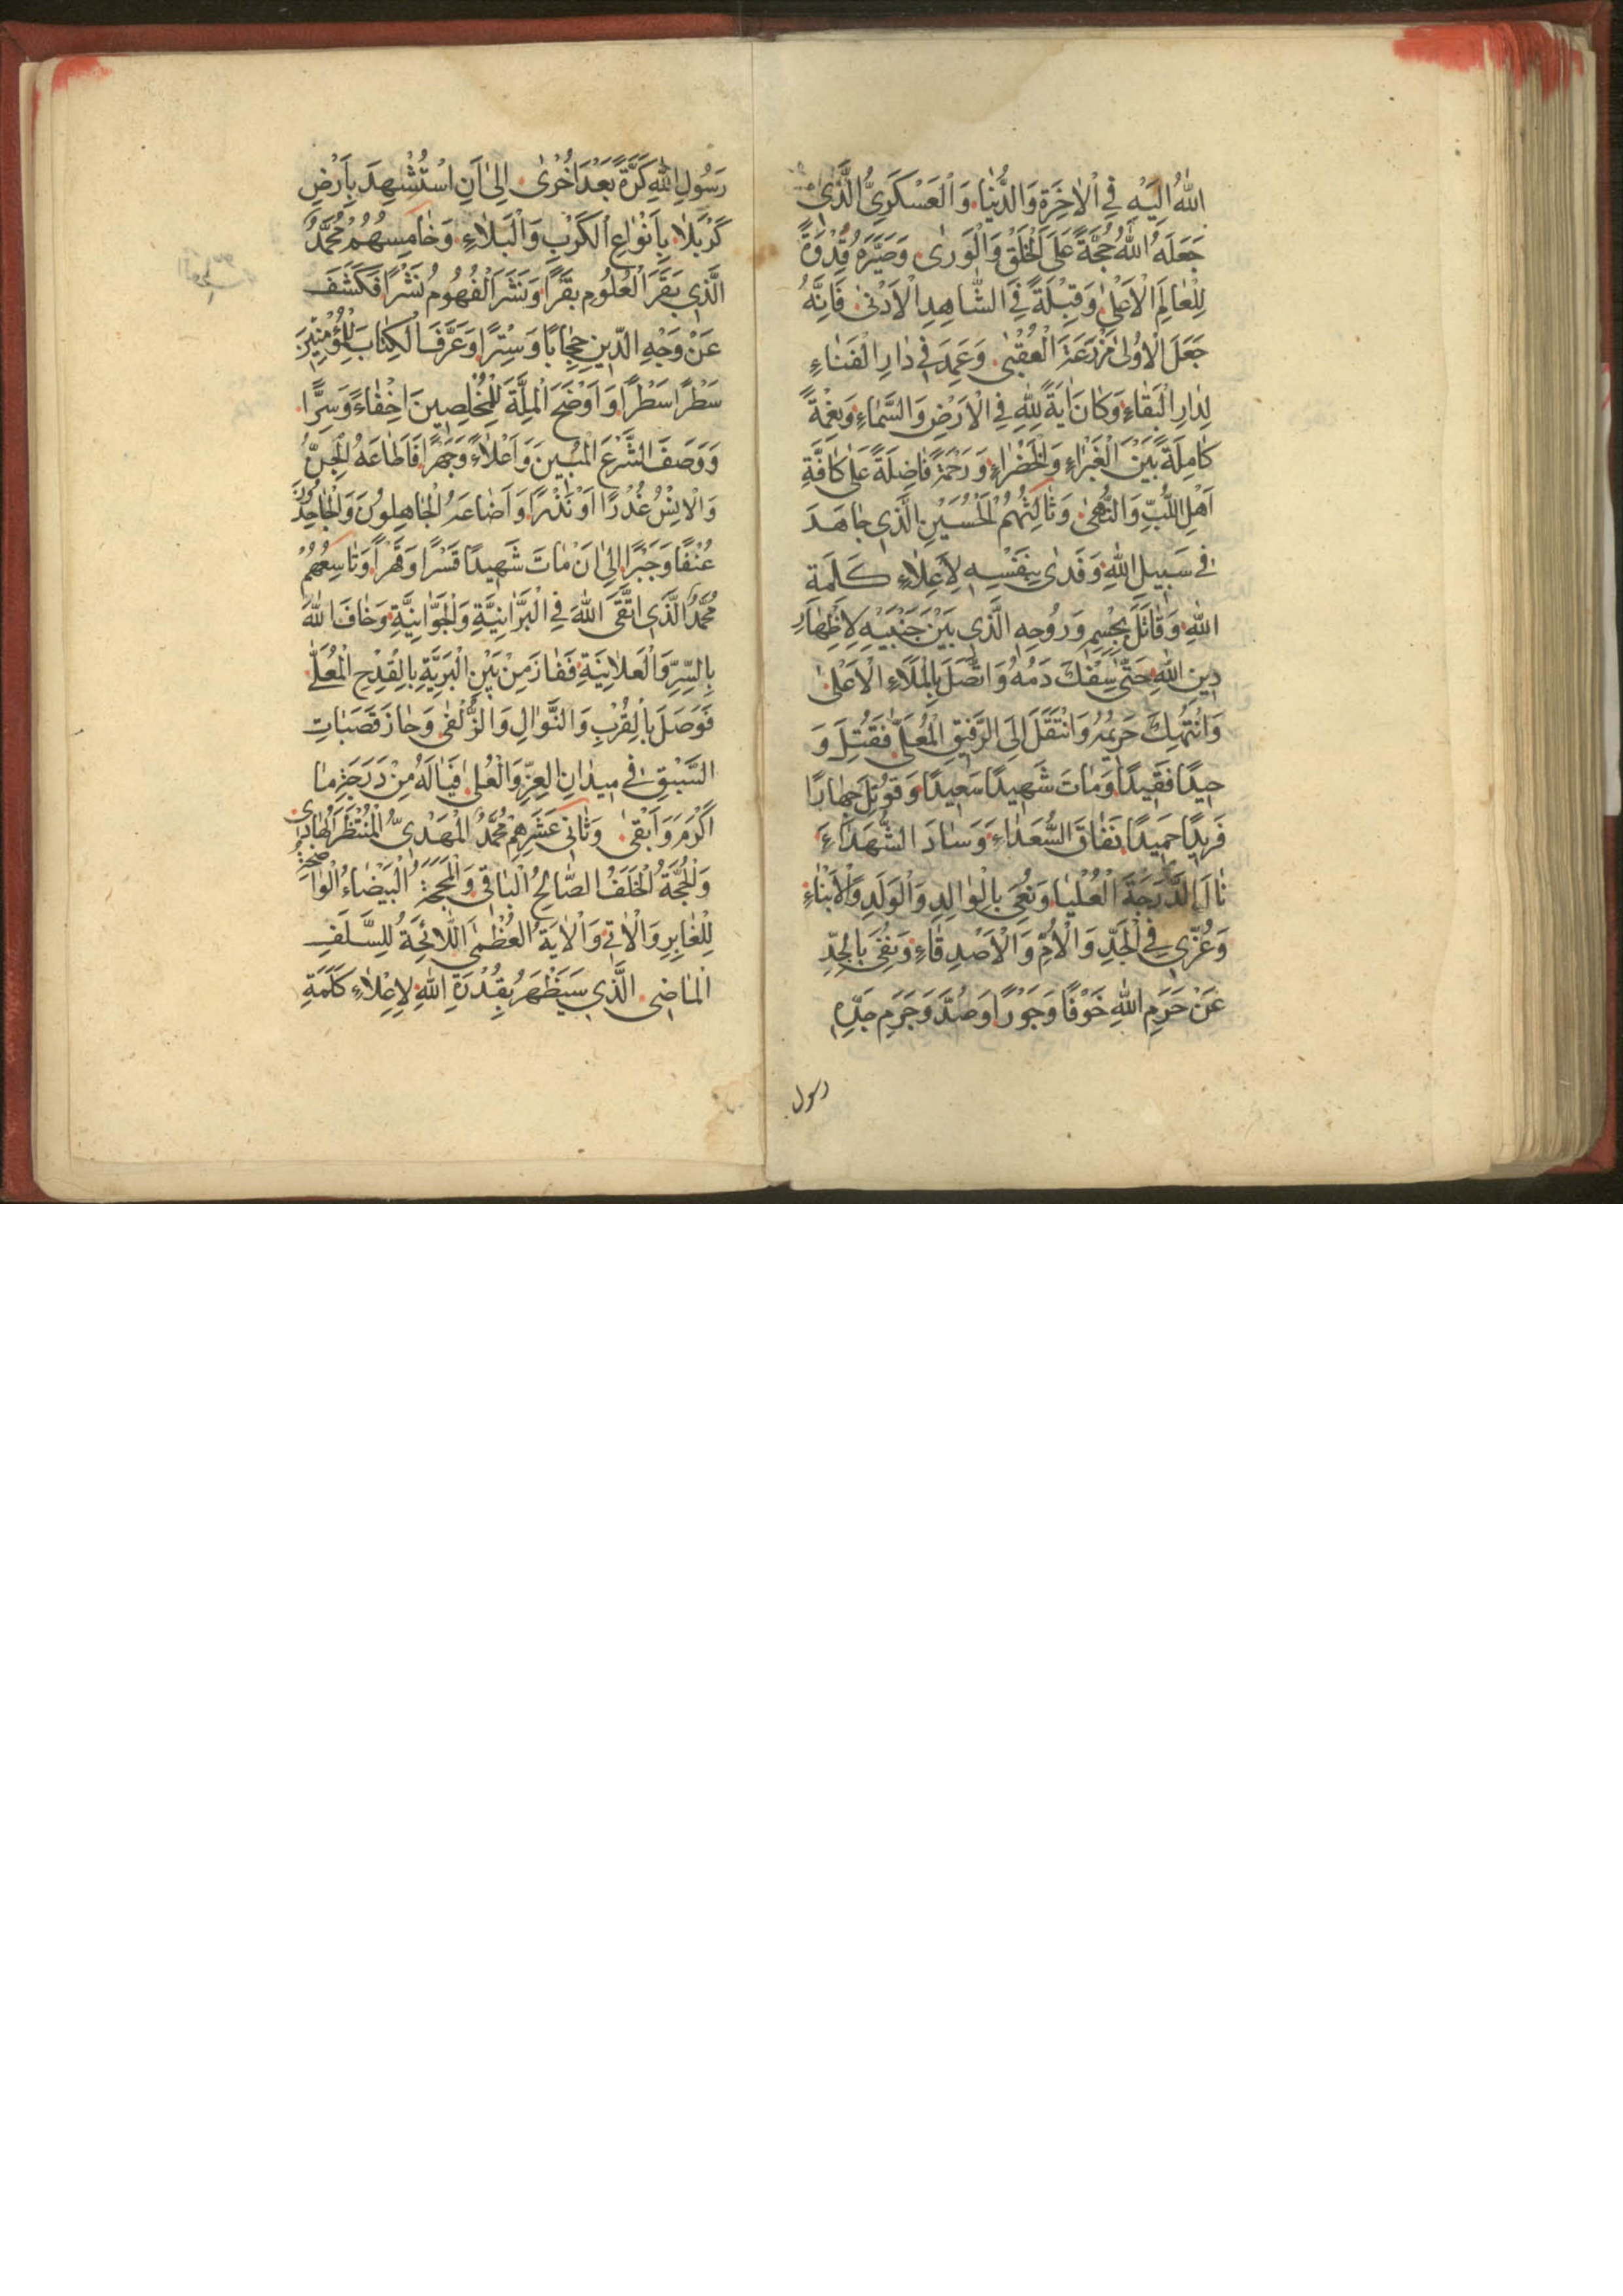 اللهُ اِلَيْهِ فِي الْاٰخِرَةِ وَالدُّنْيَا وَالْعَسْكَرِيُّ الَّذِي
جَعَلَهُ اللهُ حُجَّةً عَلَى الْخَلْقِ وَالْوَرٰى وَصَيَّرَهُ قِدْوَةً
لِلْعٰالَمِ الْاَعْلٰى وَقِبْلَةً فِي الشّٰاهِدِ الْاَدْنٰى فَاِنَّهُ
جَعَلَ الْاُولٰى مَزْرَعَةَ الْعُقْبٰى وَعَمِدَ فِي دٰارِ الْفَنٰاءِ
لِدٰارِ الْبَقٰاءِ وَكٰانَ اٰيَةً لِلّٰهِ فِي الْاَرْضِ وَالسَّمٰاءِ وَنِعْمَةً
كٰامِلَةً بَيْنَ الْغَبْرٰاءِ وَالْخَضْرٰاءِ وَرَحْمَةً فٰاضِلَةً عَلٰى كٰافَّةِ
اَهْلِ اللُّبِّ وَالنُّهٰى وَثٰالِثُهُمْ الْحُسَيْنِ الَّذِي جٰاهَدَ
فِي سَبِيلِ اللهِ وَفَدٰى بِنَفْسِهِ لِاَعْلٰاءِ كَلِمَةِ
اللهِ وَقٰاتَلَ بِجِسْمِهِ وَرُوحِهِ الَّذِي بَيْنَ جَنْبَيْهِ لِاِظْهٰارِ
دِينِ اللهِ حَتّٰى سُفِكَ دَمُهُ وَاتَّصَلَ بِالْمَلَاءِ الْاَعْلٰى
وَانْتُهِكَ حَرِيمُهُ وَانْتَقَلَ اِلَى الرَّفِيقِ الْمُعَلّٰى فَقُتِلَ وَ
حِيدًا فَقِيدًا وَمٰاتَ شَهِيدًا سَعِيدًا وَقُوتِلَ جِهٰارًا
فَرِيدًا حَمِيدًا فَفٰاقَ السُّعَدٰاءَ وَسٰادَ الشُّهَدٰاءَ
نٰالَ الدَّرَجَةَ الْعُلْيٰا وَنُعِيَ بِالْوٰالِدِ وَالْوَلَدِ وَالْاَبْنٰاءِ
وَعُزِّيَ فِي الْجَدِّ وَالْاُمِّ وَالْاَصْدِقٰاءِ وَنُفِيَ بِالْجِدِّ
عَنْ حَرَمِ اللهِ خَوْفًا وَجَوْرًا وَصُدَّ وَحَرَمِ جَدِّهِ
رسول
رَسُولِ اللهِ كَرَّةً بَعْدَ اُخْرٰى اِلٰى اَنِ اسْتُشْهِدَ بِاَرْضِ
كَرْبَلٰا بِاَنْوٰاعِ الْكَرْبِ وَالْبَلٰاءِ وَخٰامِسُهُمْ مُحَمَّدٌ
الَّذِي بَقَرَ الْعُلُومَ بَقْرًا وَنَشَرَ الْفُهُومَ نَشْرًا فَكَشَفَ
عَنْ وَجْهِ الدِّينِ حِجٰابًا وَسِتْرًا وَعَرَّفَ الْكِتٰابَ لِلْمُؤْمِنِينَ
سَطْرًا سَطْرًا وَاَوْضَحَ الْمِلَّةَ لِلْمُخْلِصِينَ اِخْفٰاءً وَسِرًّا
وَوَصَفَ الشَّرْعَ الْمُبِينَ وَاِعْلٰاءً وَجَهْرًا فَاَطٰاعَهُ الْجِنُّ
وَالْاِنْسُ عُذْرًا اَوْ نُذْرًا وَاَضٰاعَهُ الْجٰاهِلُونَ وَالْجٰاحِدُونَ
عُنْفًا وَجَبْرًا اِلٰى اَنْ مٰاتَ شَهِيدًا قَسْرًا وَقَهْرًا وَتٰاسِعُهُمْ
مُحَمَّدٌ الَّذِي اتَّقَى اللهَ فِي الْبَرّٰانِيَّةِ وَالْجَوّٰانِيَّةِ وَخٰافَ اللهَ
بِالسِّرِّ وَالْعَلٰانِيَةِ فَفٰازَ مِنْ بَيْنِ الْبَرِيَّةِ بِالْقِدْحِ الْمُعَلّٰى
فَوَصَلَ بِالْقُرْبِ وَالنَّوٰالِ وَالزُّلْفٰى وَحٰازَ قَصَبٰاتِ
السَّبْقِ فِي مِيدٰانِ الْعِزِّ وَالْعُلٰى فَيٰا لَهُ مِنْ دَرَجَةٍ مٰا
اَكْرَمَ وَاَبْقٰى وَثٰانِي عَشَرِهِمْ مُحَمَّدٌ الْمَهْدِيُّ الْمُنْتَظَرُ الْهٰادِي
وَالْحُجَّةُ الْخَلَفُ الصّٰالِحُ الْبٰاقِي وَالْمَحَجَّةُ الْبَيْضٰاءُ الْوٰاضِحَةُ
لِلْغٰابِرِ وَالْاٰتِي وَالْاٰيَةُ الْعُظْمَى اللّٰائِحَةُ لِلسَّلَفِ
الْمٰاضِي الَّذِي سَيَظْهَرُ بِقُدْرَةِ اللهِ لِاِعْلٰاءِ كَلِمَةِ